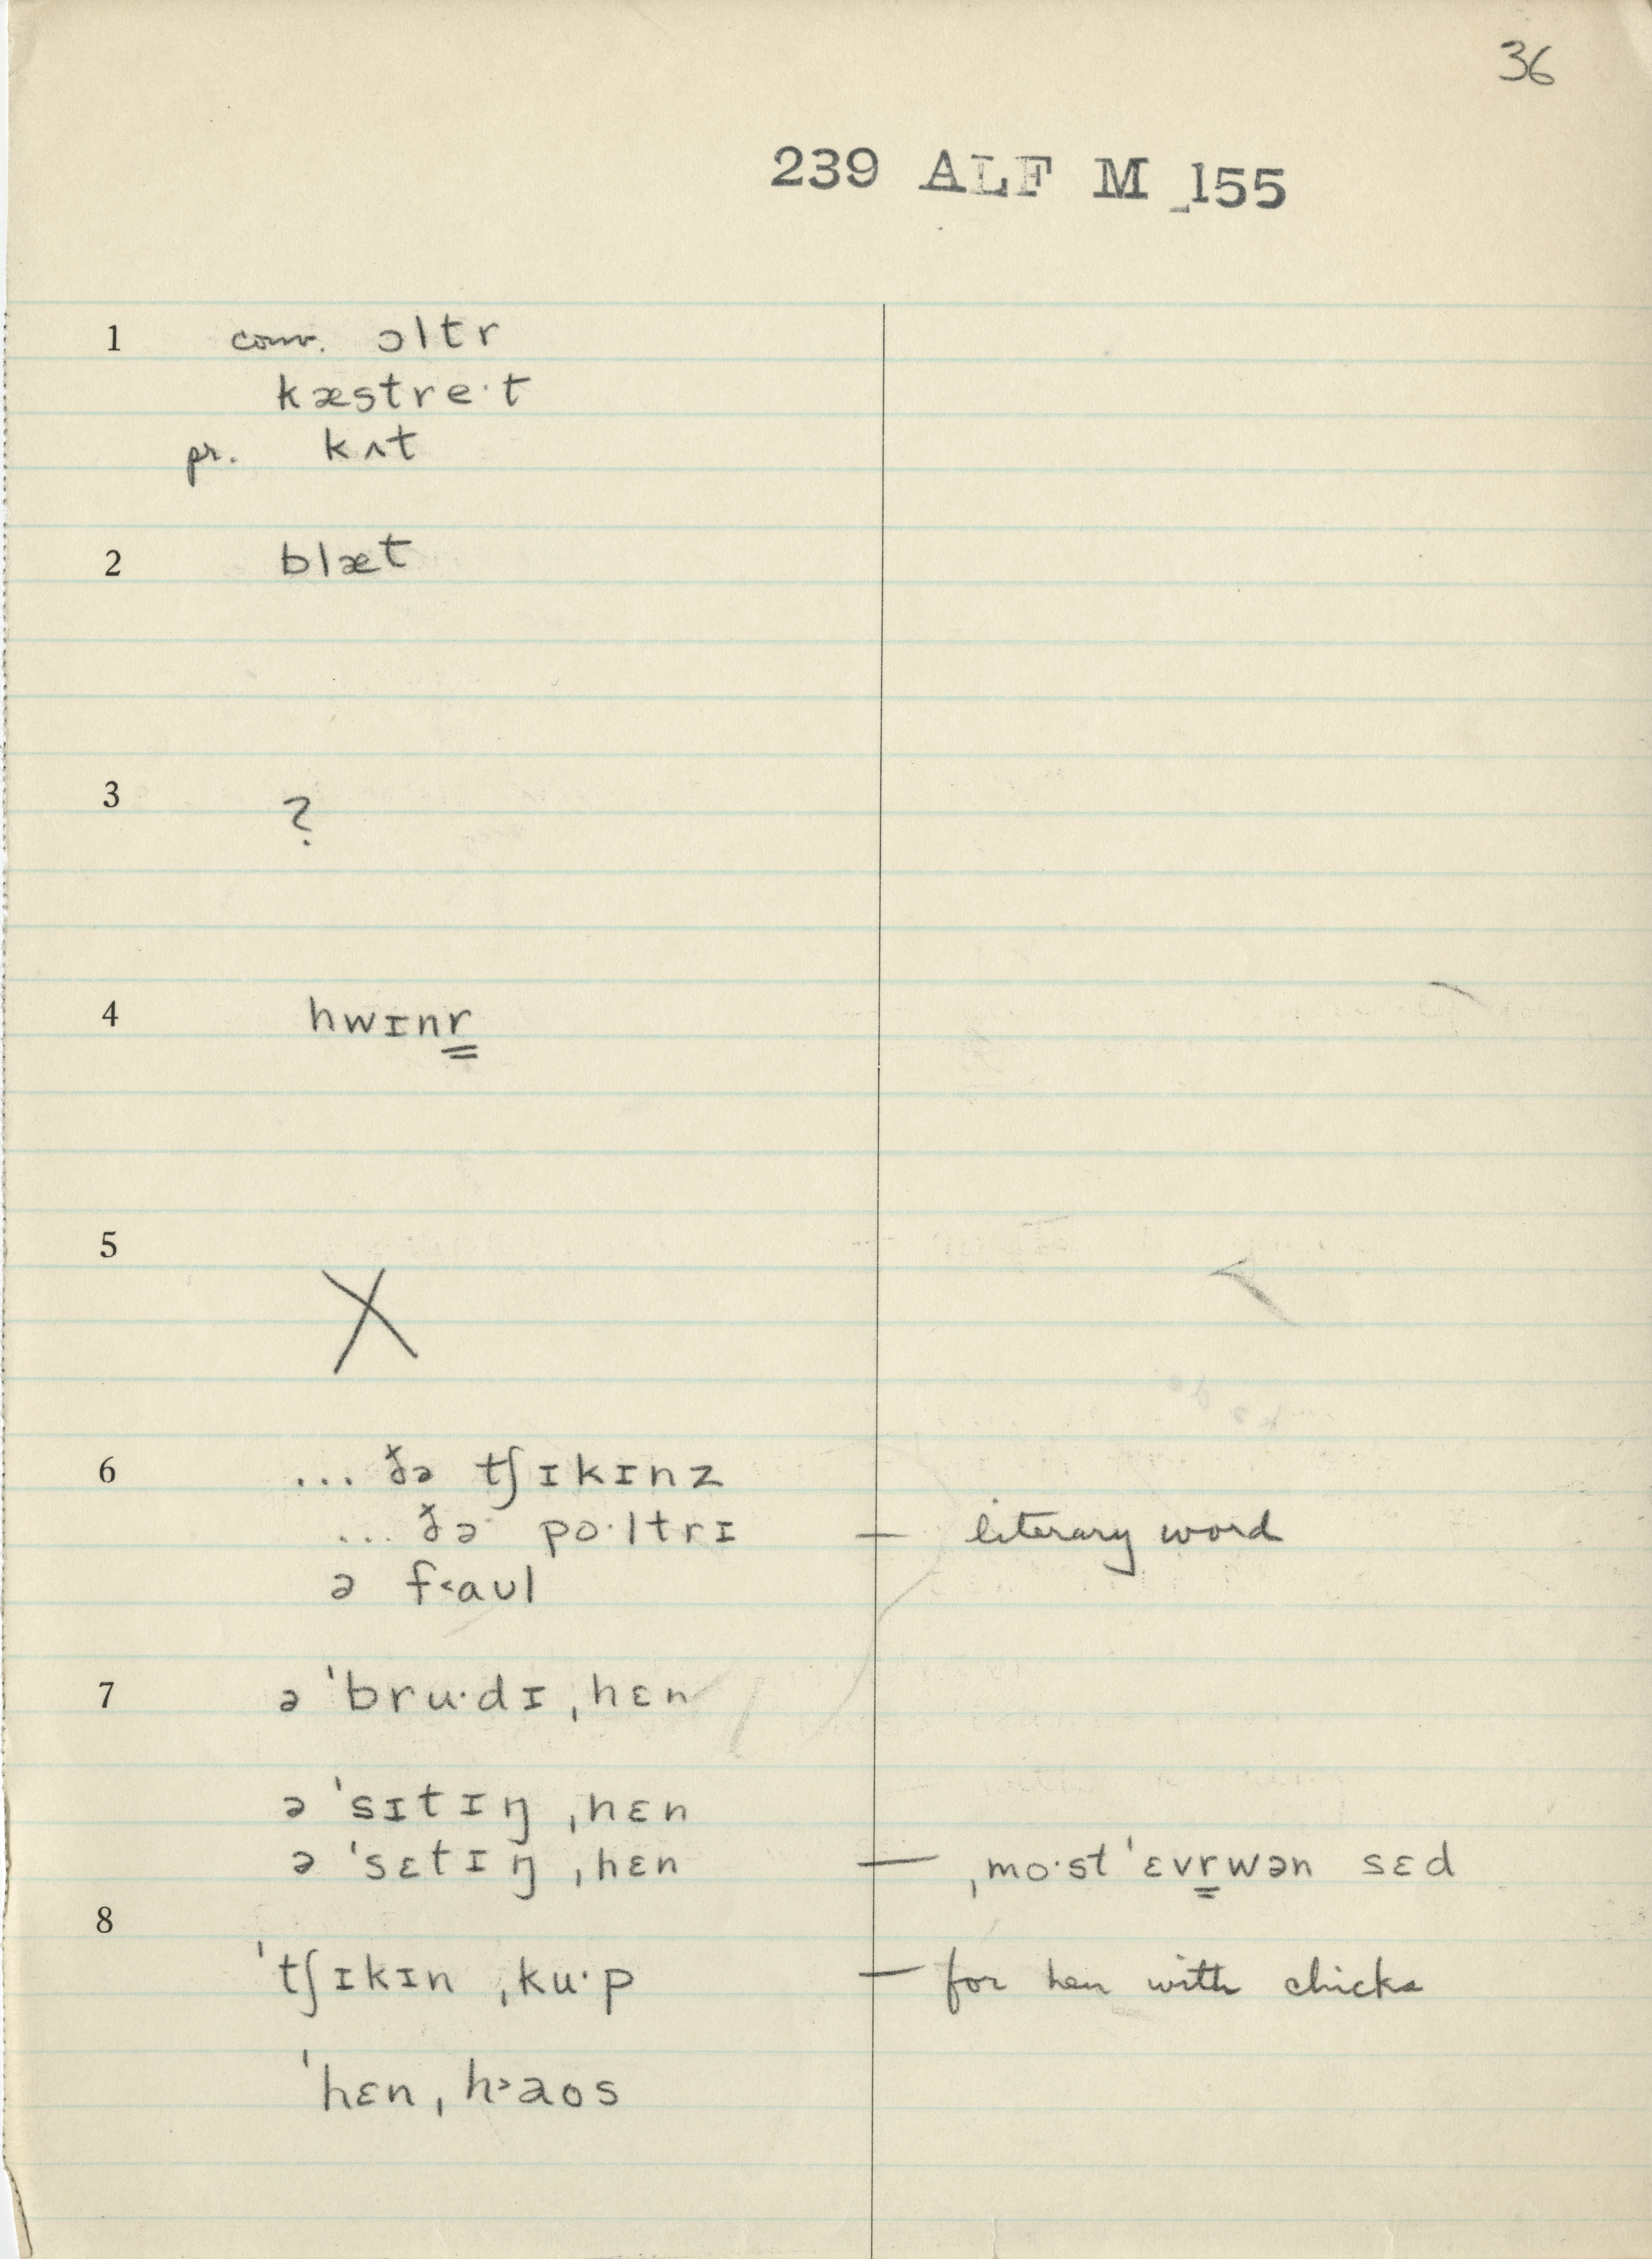 36
239 ALF M 155
1 conv. ɔltr
kæstre·t
pr. kʌt
2 blæt
3 ?
4 hwɪnr̳
5 X
6 ... ðə tʃɪkɪnz
... ðə po·ltrɪ — literary word
ə f˂aʊl
7 ə ˈbru·dɪ ˌhɛn
ə ˈsɪtɪŋ ˌhɛn
ə ˈsɛtɪŋ ˌhɛn — ˌmo·st ˈɛvr̳wən sɛd
8
ˈtʃɪkɪn ˌku·p — for hen with chicks
ˈhɛn ˌh˃aos